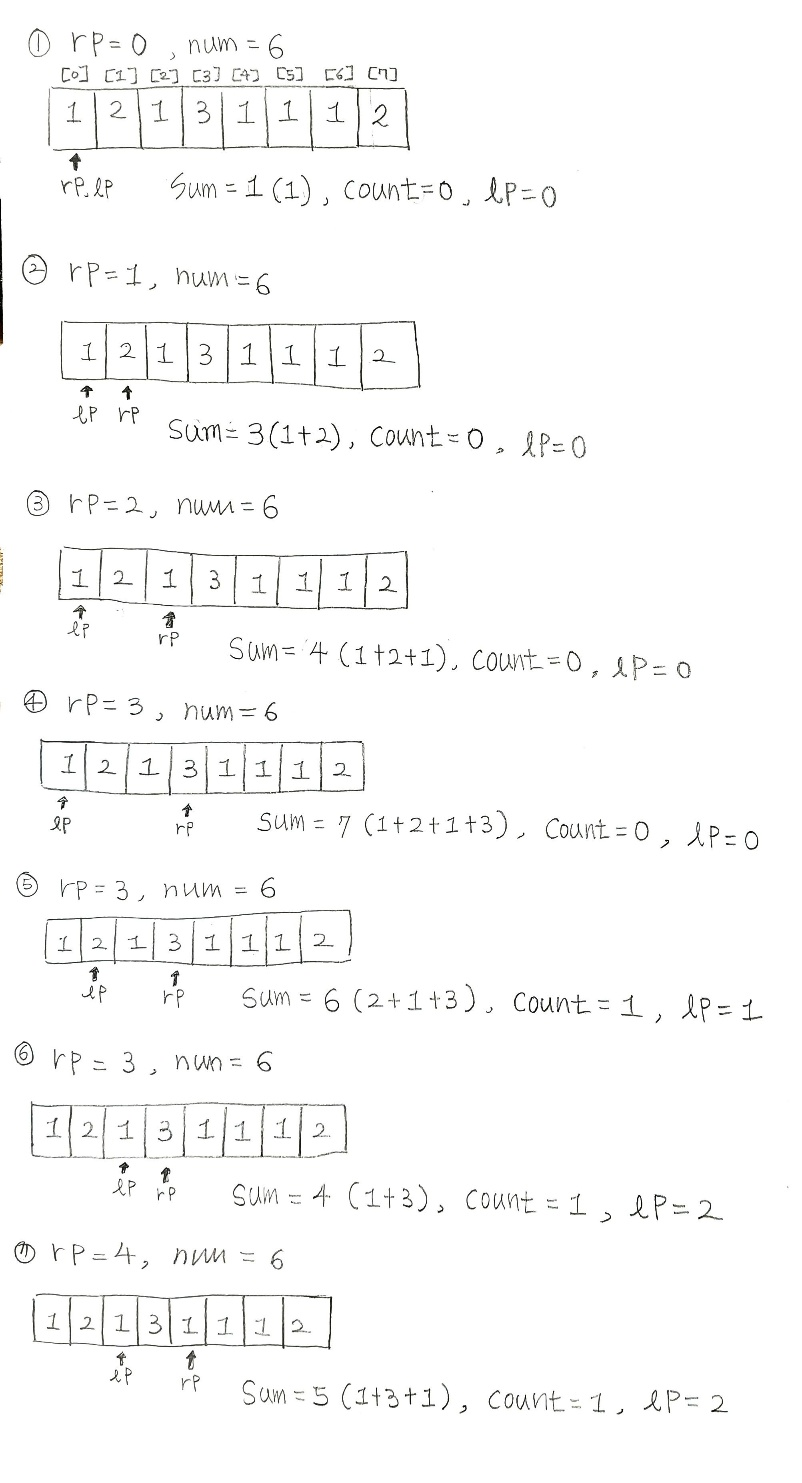 ① rP=0 , num=6
[0] [1] [2] [3] [4] [5] [6] [7]
1 2 1 3 1 1 1 2
rP, lP Sum=1(1), count=0, lP=0
② rP=1, num=6
1 2 1 3 1 1 1 2
lP rP
Sum=3(1+2), count=0, lP=0
③ rP=2, num=6
1 2 1 3 1 1 1 2
lP rP
Sum=4(1+2+1), count=0, lP=0
④ rP=3, num=6
1 2 1 3 1 1 1 2
lP rP
Sum=7(1+2+1+3), count=0, lP=0
⑤ rP=3, num=6
1 2 1 3 1 1 1 2
lP rP
Sum=6(2+1+3), count=1, lP=1
⑥ rP=3, num=6
1 2 1 3 1 1 1 2
lP rP
Sum=4(1+3), count=1, lP=2
⑦ rP=4, num=6
1 2 1 3 1 1 1 2
lP rP
Sum=5(1+3+1), count=1, lP=2